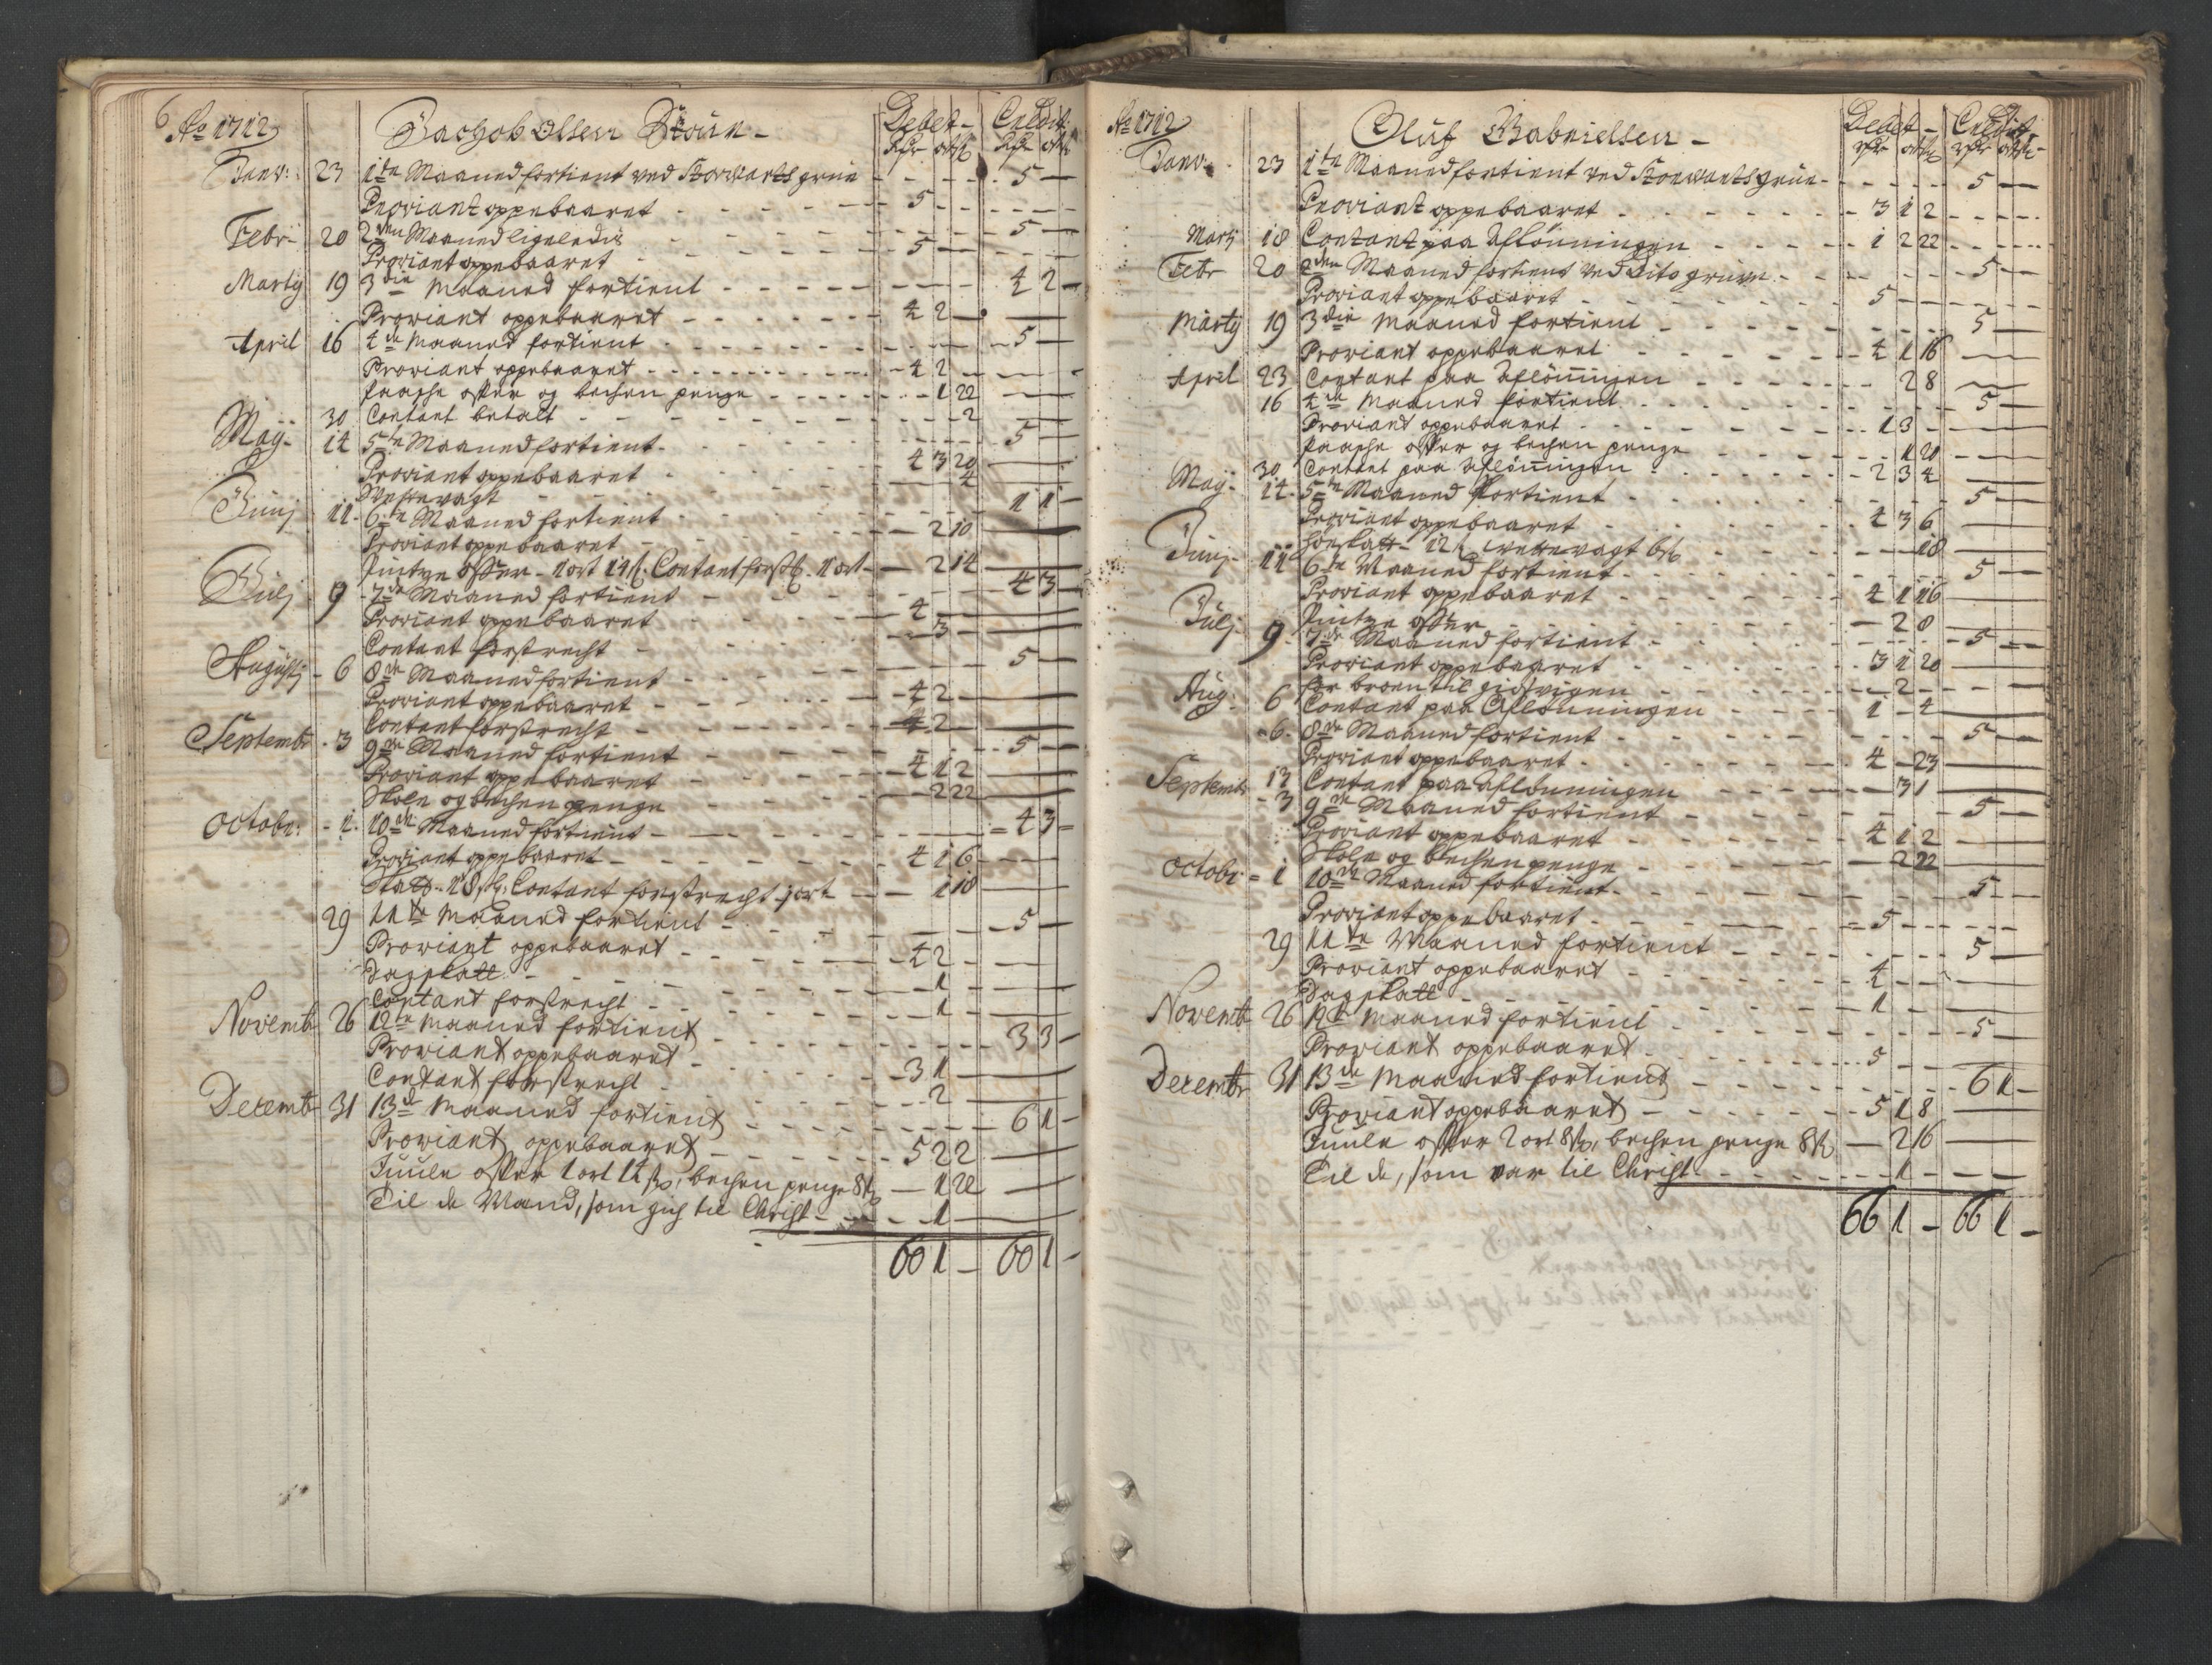 6
Ao 1712
Jachob Olsen
Debet - Credit
Rdr ort ß Rdr ort ß
Janv: 23 1te Maaned fortient ved Storvartz grüe - 5 -
Proviant oppebaaret - 5 - -
Febr: 20 2den Maaned ligeledis - 5 -
Proviant oppebaaret - 5 - -
Martij 19 3die Maaned fortient - 4 2 -
Proviant oppebaaret - 4 2 -
April 16 4de Maaned fortient - 5 -
Proviant oppebaaret - 4 2 -
Paasche offer og bechen penge - 1 22
30 Contant betalt - 2
Maij 14 5te Maaned fortient - 5 -
Proviant oppebaaret - 4 3 20
Wettevagt - 4
Junij 11 6te Maaned fortient - 1 1 -
Proviant oppebaaret - 2 10
Pintze Offer - 1 ort 14 ß. Contant forstr. 1 ort - 2 14
Julj 9 7de Maaned fortient - 4 3 -
Proviant oppebaaret - 4 -
Contant forstrecht - 3 -
Augustj 6 8de Maaned fortient - 5 -
Proviant oppebaaret - 4 2 -
Contant forstrecht - 2 -
Septembr 3 9de Maaned fortient - 5 -
Proviant oppebaaret - 4 1 2
Skole og bechen penge - 2 22
Octobr: 1 10de Maaned fortient - 4 3 -
Proviant oppebaaret - 4 1 6
Skatt - 18 ß, Contant forstrecht 1 ort - 1 18
29 11te Maaned fortient - 5 -
Proviant oppebaaret - 4 2 -
Dagskatt - 1 -
Contant forstrecht - 1 -
Novembr 26 12te Maaned fortient - 3 3 -
Proviant oppebaaret - 3 1 -
Contant forstrecht - 2 -
Decembr 31 13de Maaned fortient - 6 1 -
Proviant oppebaaret - 5 2 2
Juule offer 1 ort 14 ß, bechen penge 8 ß - 1 22
Til de Mænd, som gich til Christ - 1 -
60 1 - 60 1 -
Ao 1712
Oluf Gabrielsen -
Debet - Credit -
Rdr ort ß Rdr ort ß
Janv: 23 1te Maaned fortient ved Storvartz grüe - 5 -
Proviant oppebaaret - 3 1 2
Martj 18 Contant paa Aflönningen - 1 2 22
Febr 20 2den Maaned fortient ved dito gruve - 5 -
Proviant oppebaaret - 5 -
Martij 19 3die Maaned fortient - 5 -
Proviant oppebaaret - 4 1 16
April 23 Contant paa Aflönningen - 2 8
16 4de Maaned fortient - 5 -
Proviant oppebaaret - 1 3 -
Paasche offer og bechen penge - 1 20
30 Contant paa Aflönningen - 2 3 4
Maij 14 5te Maaned fortient - 5 -
Proviant oppebaaret - 4 3 6
12 ß wettevagt 6 ß - 18
Junij 11 6te Maaned fortient - 5 -
Proviant oppebaaret - 4 1 16
Pintze offer - 2 8
Julj 9 7de Maaned fortient - 5 -
Proviant oppebaaret - 3 1 20
for broen til - 2 -
Aug: 6 Contant paa Aflönningen - 1 - 4
6 8de Maaned fortient - 5 -
Proviant oppebaaret - 4 - 23
Septembr 13 Contant paa Aflönningen - 3 1
3 9de Maaned fortient - 5 -
Proviant oppebaaret - 4 1 2
Skole og bechen penge - 2 22
Octobr 1 10de Maaned fortient - 5 -
Proviant oppebaaret - 5 -
29 11te Maaned fortient - 5 -
Proviant oppebaaret - 4 -
Dagskatt - 1 -
Novembr 26 12te Maaned fortient - 5 -
Proviant oppebaaret - 5
Decembr 31 13de Maaned fortient - 6 1 -
Proviant oppebaaret - 5 1 8
Juule offer 2 ort 8 ß, bechen penge 8 ß - 2 16
Til de, som var til Christ - 1 -
66 1 - 66 1 -